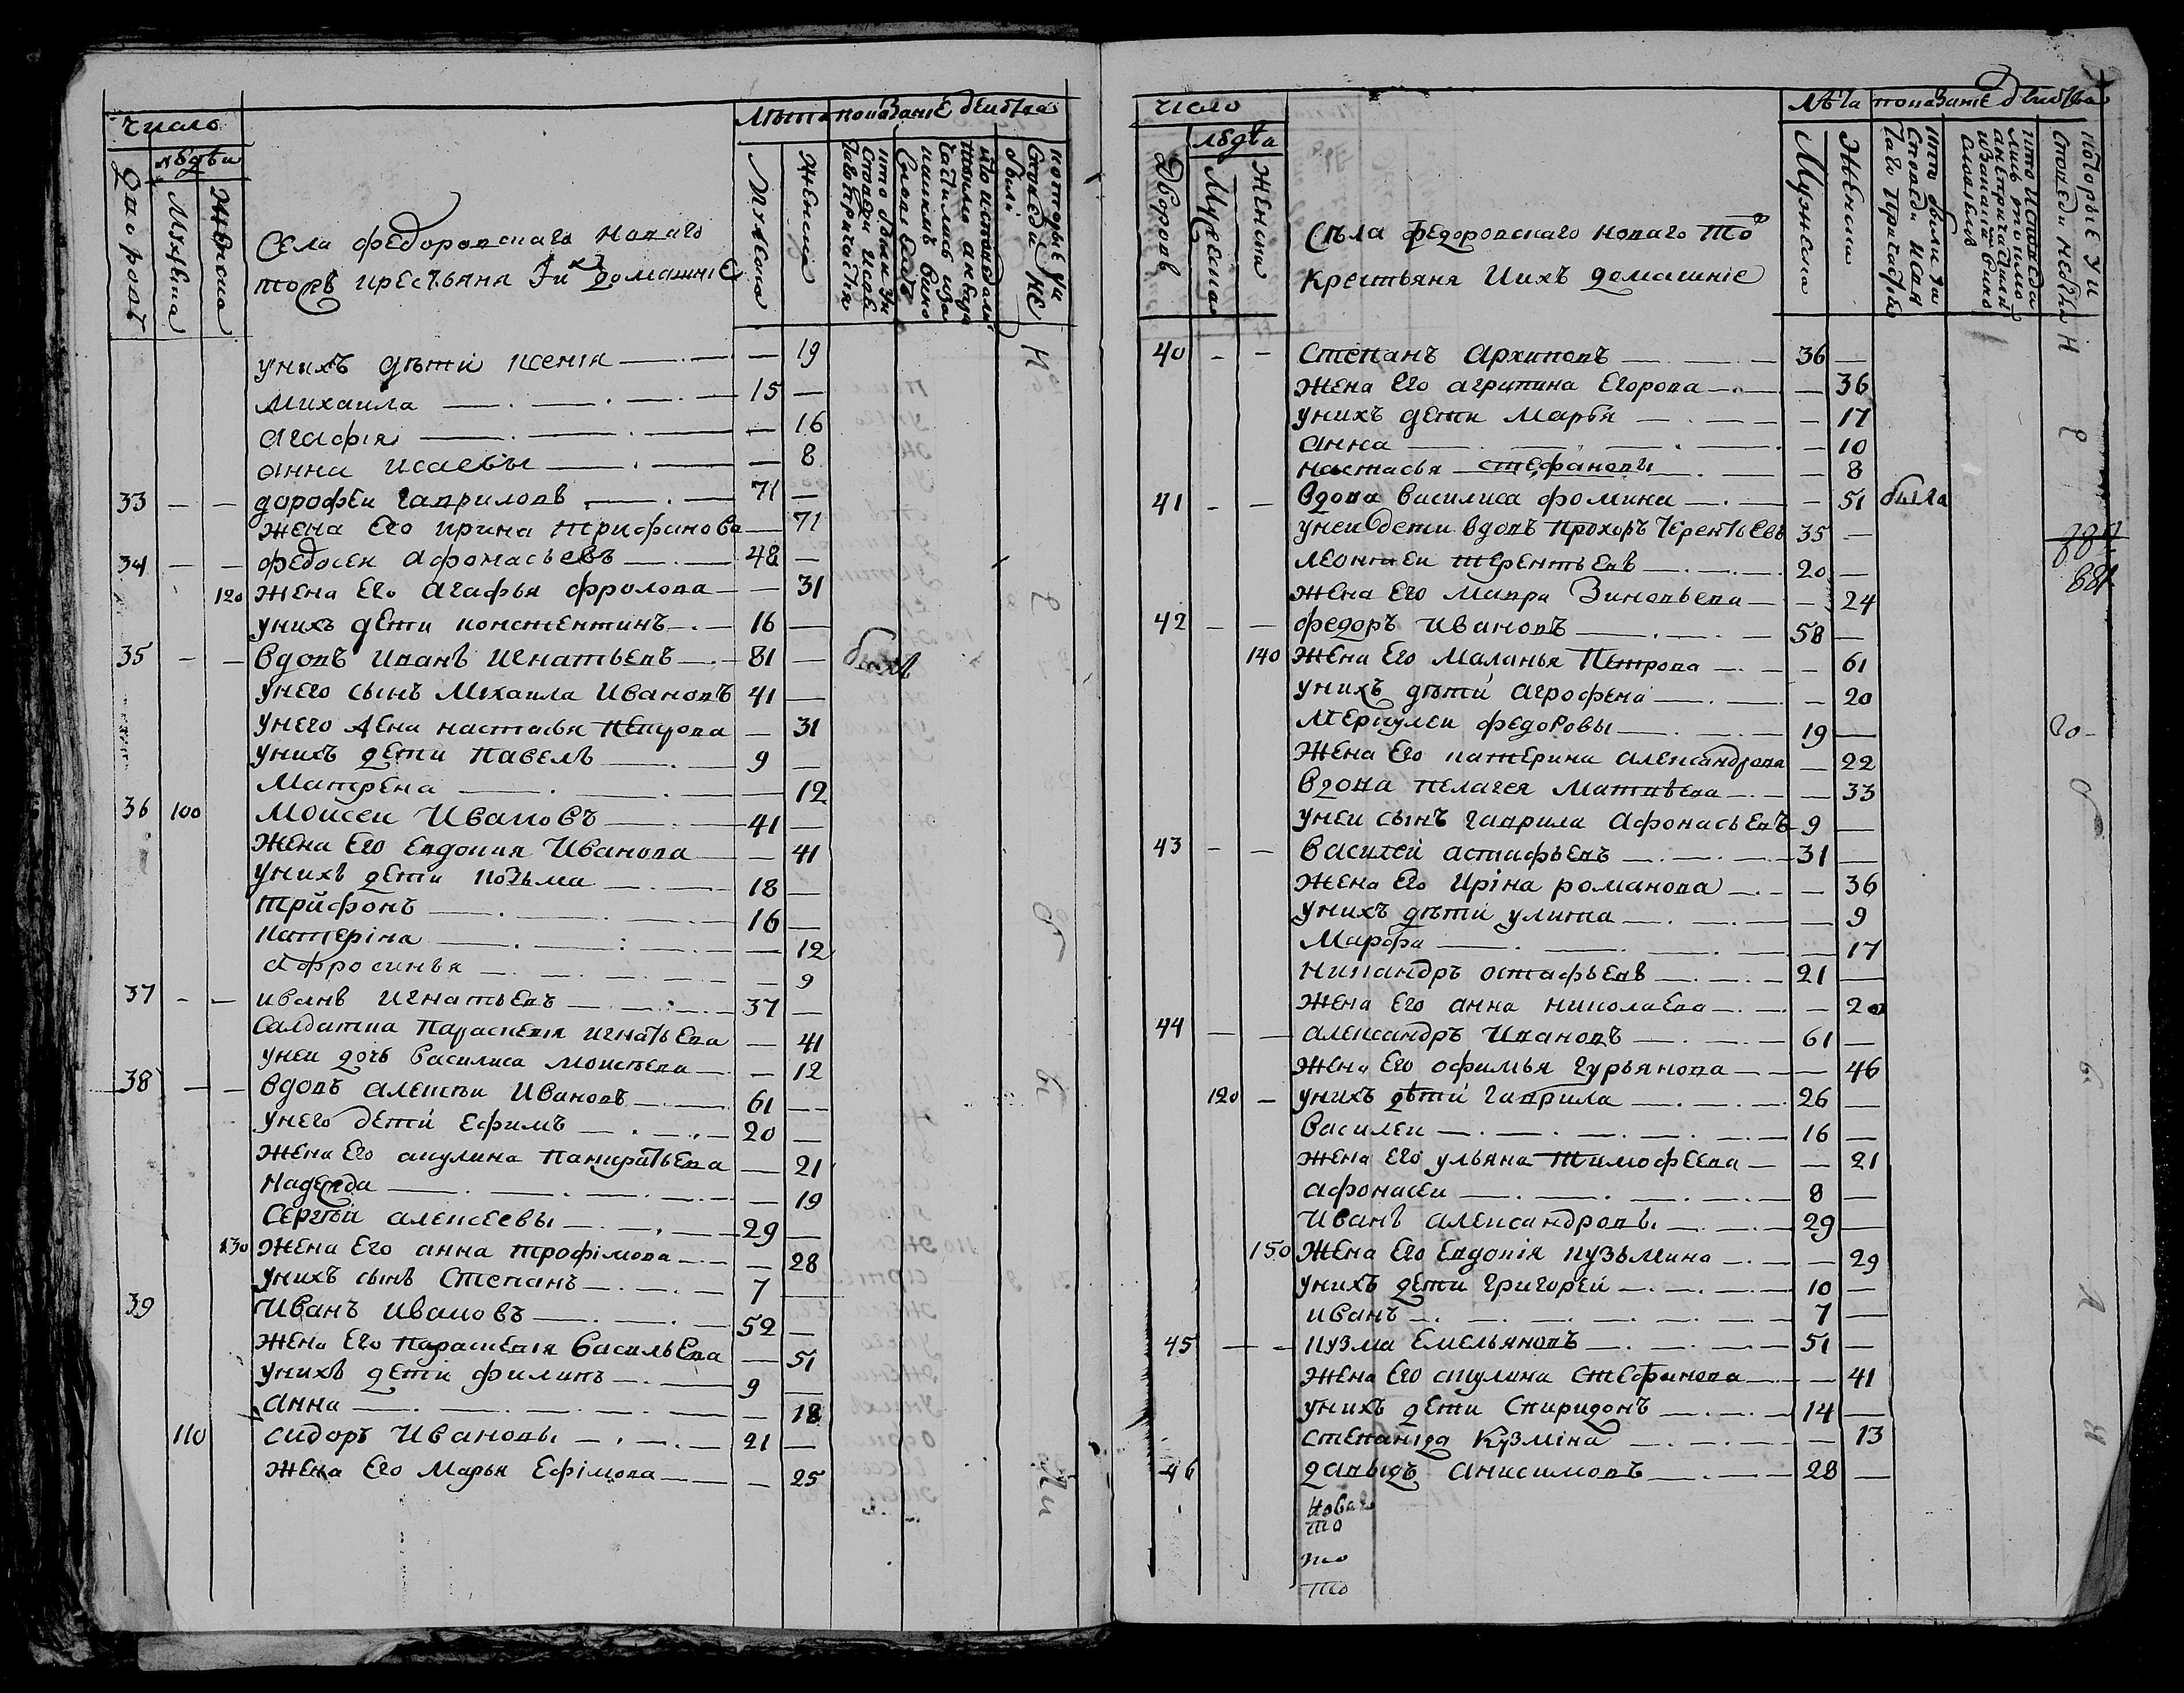 число
лѣта показание действа
Дворовъ
людѣи
Мужеска
Женска
Мужеска
Женска
Села федоровскаго Новаго
тожъ кресьяна и ихъ домашние
унихъ дѣти ксения — 19
Михаила 15 —
агафия — 16
анна исаевы — 8
33 — — дорофеи гавриловъ 71 —
жена Его ирина трифанова — 71
34 — — федосеи афонасьевъ 48 —
120 жена Его агафья фролова — 31
унихъ дети констентинъ 16 —
35 — — вдовъ иванъ игнатьевъ 81 — былъ
унего сынъ Михаила Ивановъ 41 —
унего жена настасья петрова — 31
унихъ дети павелъ 9 —
Матрена — 12
36 100 Моисеи Ивановъ 41 —
жена Его Евдокия Иванова — 41
унихъ дети козьма 18 —
трифонъ 16 —
катеріна — 12
афросинья — 9
37 — — иванъ игнатьевъ 37 —
салдатка параскевия игнатьева — 41
унеи дочь василиса моисѣева — 12
38 — — вдовъ алексѣи Ивановъ 61 —
унего дети Ефимъ 20 —
жена Его акулина панкратьева — 21
надежда — 19
Сергѣй алексеевы 29 —
130 жена Его анна трофімова — 28
унихъ сынъ Степанъ 7 —
39 Иванъ Ивановъ 52 —
жена Его параскевия васильева — 51
унихъ дети филипъ 9 —
анна — 18
110 сидоръ Ивановы 21 —
жена Его Марья Ефімова — 25
число
лѣта показание действа
Дворовъ
людѣи
Мужеска
Женска
Мужеска
Женска
Сѣла федоровскаго новаго то
крестьяня иихъ домашніе
40 — — Степанъ архиповъ 36 —
жена Его агрипина Егорова — 36
унихъ дети Марья — 17
анна — 10
настасья стефановы — 8
41 — — вдова василиса фомина — 51 была
унеи дети вдовъ прохоръ терентьевъ 35 —
леонтеи терентьевъ 20 —
жена Его Мавра Зиновьева — 24
42 — — федоръ ивановъ 58 —
140 жена Его Маланья петрова — 61
унихъ дѣти агрофена — 20
Меркулеи федоровы 19 —
жена Его катерина александрова — 22
вдова пелагея Матвѣева — 33
унеи сынъ гаврила афонасьевъ 9 —
43 — — василей астафьевъ 31 —
жена Его Иріна романова — 36
унихъ дѣти улита — 9
Марфа — 17
никандръ остафьевъ 21 —
жена Его анна николаева — 20
44 — — александръ Ивановъ 61 —
жена Его офимья гурьянова — 46
120 — унихъ дѣти гаврила 26 —
василеи 16 —
жена Его ульяна тимофеева — 21
афонасеи 8 —
Иванъ александровы 29 —
150 жена Его Евдокія кузьмина — 29
унихъ дети григорей 10 —
иванъ 7 —
45 — — кузма Емельяновъ 51 —
жена Его акулина стефанова — 41
унихъ дети Спиридонъ 14 —
степанида Кузміна — 13
46 давыдъ анисимовъ 28 —
новаго
то
то
то